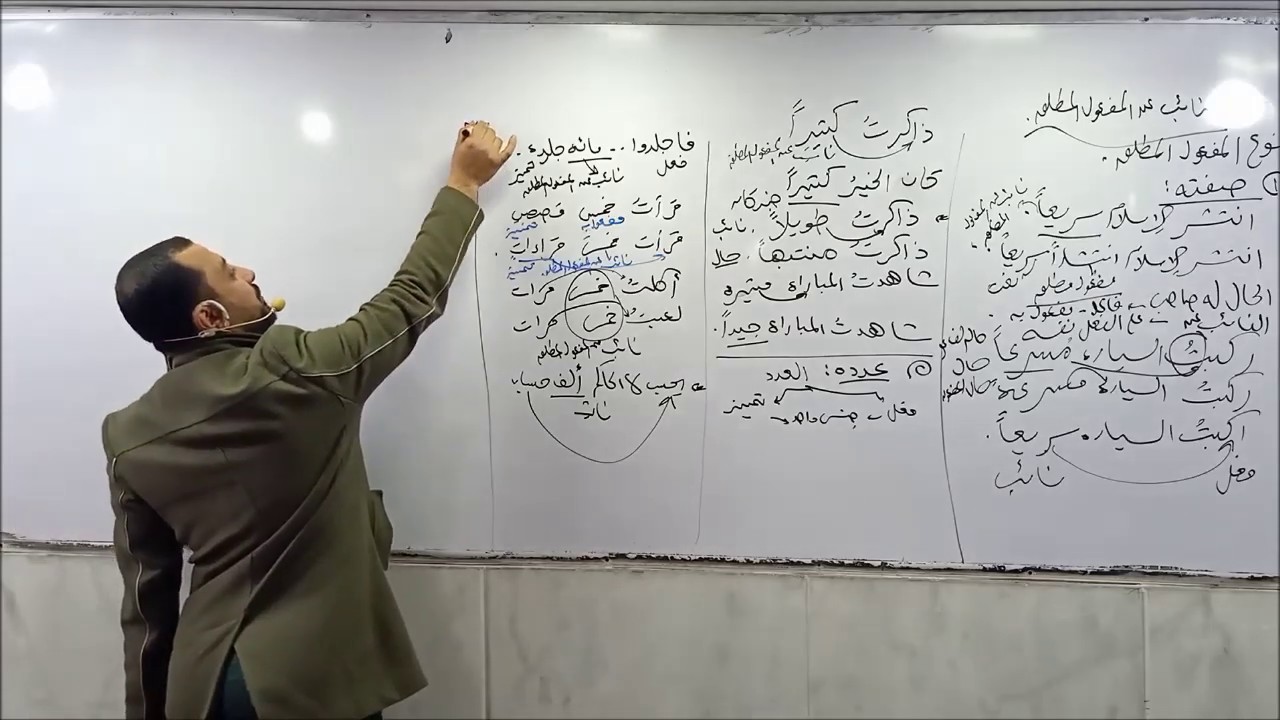 نائب عن المفعول المطلق.
نوع المفعول المطلق.
① صفته:
انتشر الإسلام سريعاً. نائب عن المفعول المطلق
انتشر الإسلام انتشاراً سريعاً.
مفعول مطلق نعت
الحال له صاحب ← فاعل - مفعول به.
النائب عن ← علم الفعل نفسه
ركبتُ السيارة مُسرعاً حال
ركبتُ السيارة مسرعة
ركبتُ السيارة سريعاً.
فعل نائب
ذاكرتُ كثيراً
نائب عن المفعول المطلق
كان الخيرُ كثيراً خبر كان
ذاكرتُ طويلاً. نائب
ذاكرت منتبهاً. حال
شاهدتُ المباراة مثيرة
شاهدتُ المباراة جيداً.
② عدده: العدد
تمييز
فاجلدوا .. مائة جلدة.
فعل نائب عن المفعول المطلق تمييز
قرأتُ خمس قصص
مفعول به تمييز
قرأت خمسَ قراءات.
نائب عن المفعول المطلق تمييز
أكلتُ خمس مرات
لعبتُ خمسَ مرات
نائب عن المفعول المطلق
ألف حساب
نائب